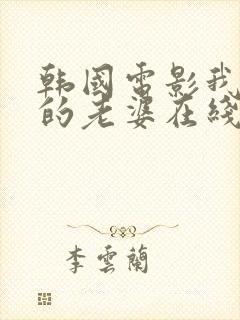 韩國電影我
的老婆在綫
李雲蘭